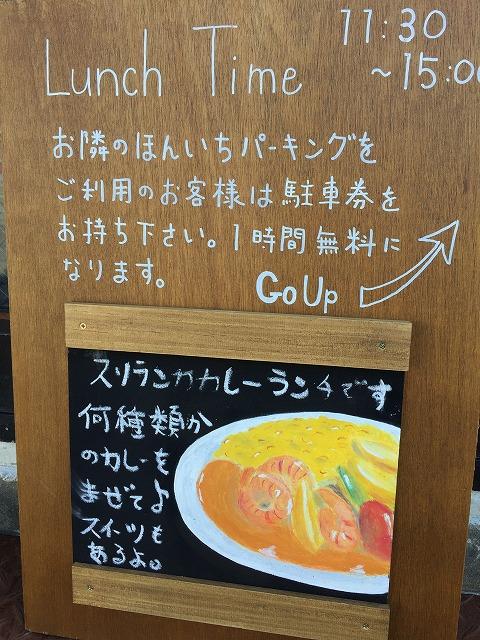 Lunch Time
11:30
~15:00
お隣のほんいちパーキングを
ご利用のお客様は駐車券を
お持ち下さい。1時間無料に
なります。
Go Up
スリランカカレーランチです
何種類か
のカレーを
まぜてよ
スイーツも
あるよ。